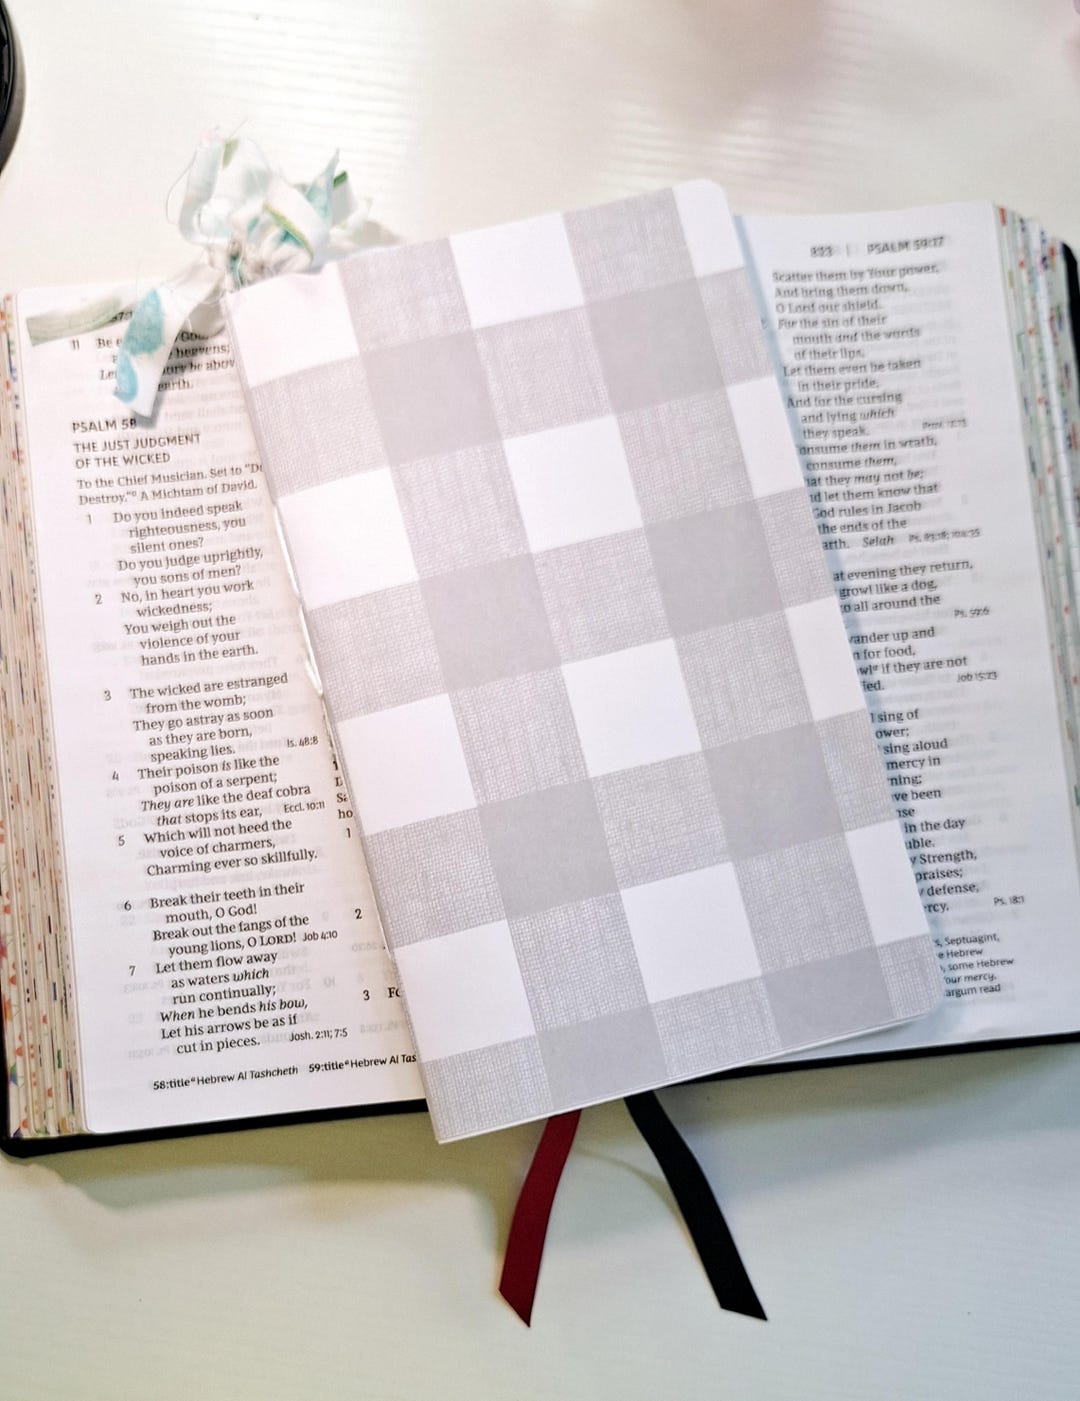 11 Be
heavens;
be abov
earth.
PSALM 58
THE JUST JUDGMENT
OF THE WICKED
To the Chief Musician. Set to "D
Destroy."ᵃ A Michtam of David.
1 Do you indeed speak
righteousness, you
silent ones?
Do you judge uprightly,
you sons of men?
2 No, in heart you work
wickedness;
You weigh out the
violence of your
hands in the earth.
3 The wicked are estranged
from the womb;
They go astray as soon
as they are born,
speaking lies. Is. 48:8
4 Their poison is like the
poison of a serpent;
They are like the deaf cobra
that stops its ear, Eccl. 10:11
5 Which will not heed the
voice of charmers,
Charming ever so skillfully.
6 Break their teeth in their
mouth, O God!
Break out the fangs of the
young lions, O LORD! Job 4:10
7 Let them flow away
as waters which
run continually;
When he bends his bow,
Let his arrows be as if
cut in pieces. Josh. 2:11; 7:5
58:title ᵃ Hebrew Al Tashcheth 59:title ᵃ Hebrew Al Tas
ho
1
2
3 Fo
823 | PSALM 59:17
Scatter them by Your power,
And bring them down,
O Lord our shield.
For the sin of their
mouth and the words
of their lips,
Let them even be taken
in their pride,
And for the cursing
and lying which
they speak.
onsume them in wrath,
consume them,
hat they may not be;
nd let them know that
God rules in Jacob
the ends of the
arth. Selah
at evening they return,
growl like a dog,
o all around the
Ps. 59:6
wander up and
n for food,
owlᵃ if they are not
ied. Job 15:23
l sing of
ower;
sing aloud
mercy in
ning;
ve been
nse
in the day
uble.
y Strength,
praises;
defense,
rcy. Ps. 18:1
s, Septuagint,
e Hebrew
, some Hebrew
our mercy.
argum read